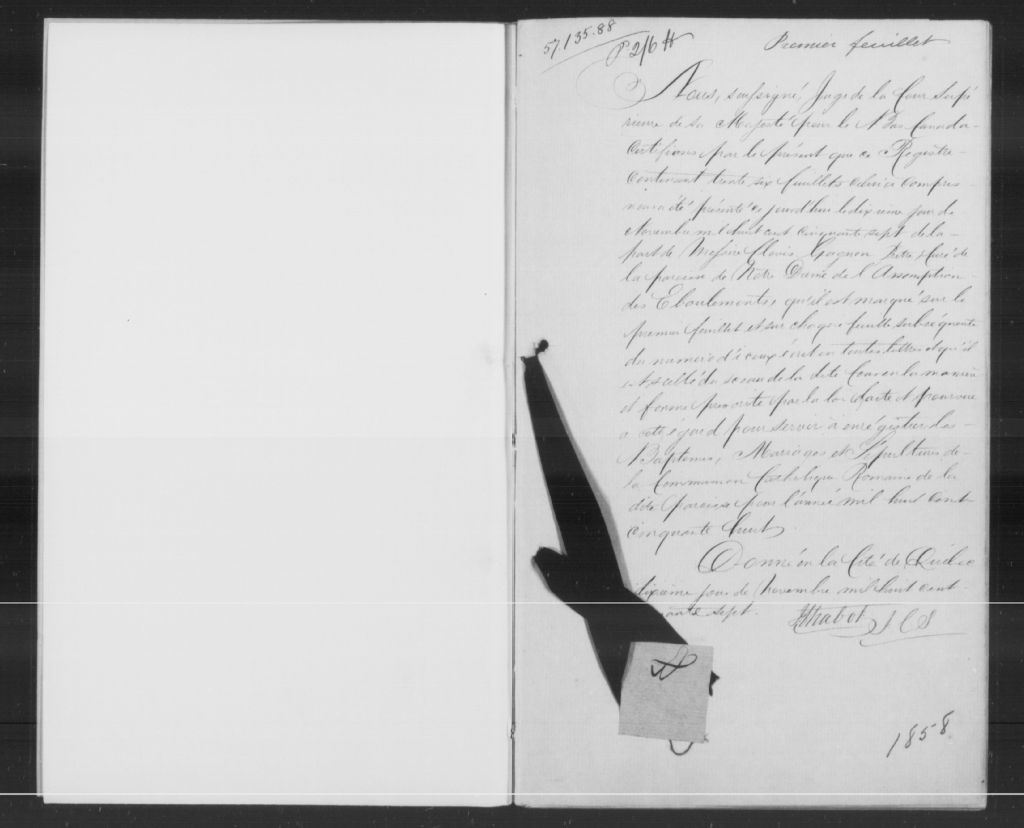 57135.88
P 216 H
Premier feuillet
Nous, soussigné, Juge de la Cour Supé
rieure de Sa Majesté pour le Bas Canada
Certifions par le présent que ce Registre
Contenant trente six feuillets celui ci compris
nous a été présenté ce jourd'hui le dixième jour de
Novembre mil huit cent cinquante sept de la
part de Messire Clovis Gagnon Ptre Curé de
la paroisse de Notre Dame de l'Assomption
des Eboulements, qu'il est marqué sur le
premier feuillet et sur chaque feuillet subséquent
du numéro d'iceux écrit en toutes lettres et qu'il
est scellé du sceau de la dite Cour en la manière
et forme prescrite par la loi faite et pourvue
a cet égard pour servir à enrégistrer les
Baptemes, Mariages et Sépultures de
la Communion Catholique Romaine de la
dite paroisse pour l'année mil huit cent
cinquante huit.
Donné en la Cité de Québec
dixième jour de Novembre mil huit cent
sept.
JCS
1858